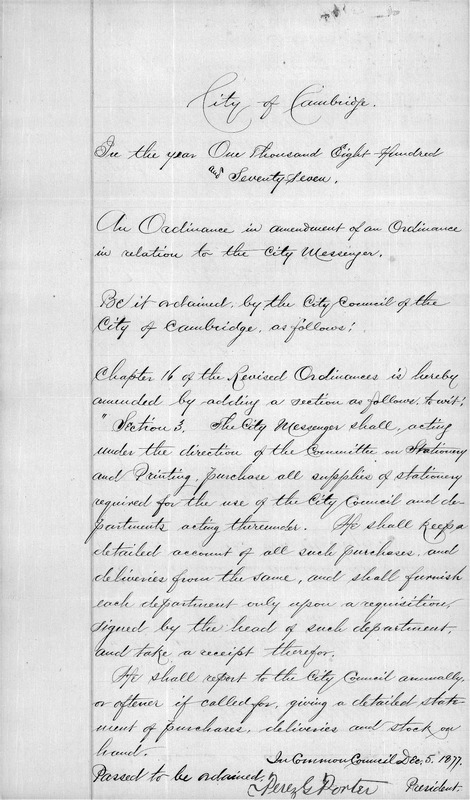 City of Cambridge.
In the year One Thousand Eight Hundred
and Seventy Seven.
An Ordinance in amendment of an Ordinance
in relation to the City Messenger.
Be it ordained, by the City Council of the
City of Cambridge, as follows:
Chapter 16 of the Revised Ordinances is hereby
amended by adding a section as follows, to wit:
"Section 3. The City Messenger shall, acting
under the direction of the Committee on Stationery
and Printing, purchase all supplies of stationery
required for the use of the City Council and de-
partments acting thereunder. He shall keep a
detailed account of all such purchases, and
deliveries from the same, and shall furnish
each department only upon a requisition,
signed by the head of such department,
and take a receipt therefor.
He shall report to the City Council annually,
or oftener if called for, giving a detailed state-
ment of purchases, deliveries and stock on
hand.
In Common Council Dec. 5. 1877.
Passed to be ordained.
Perez G Porter President.